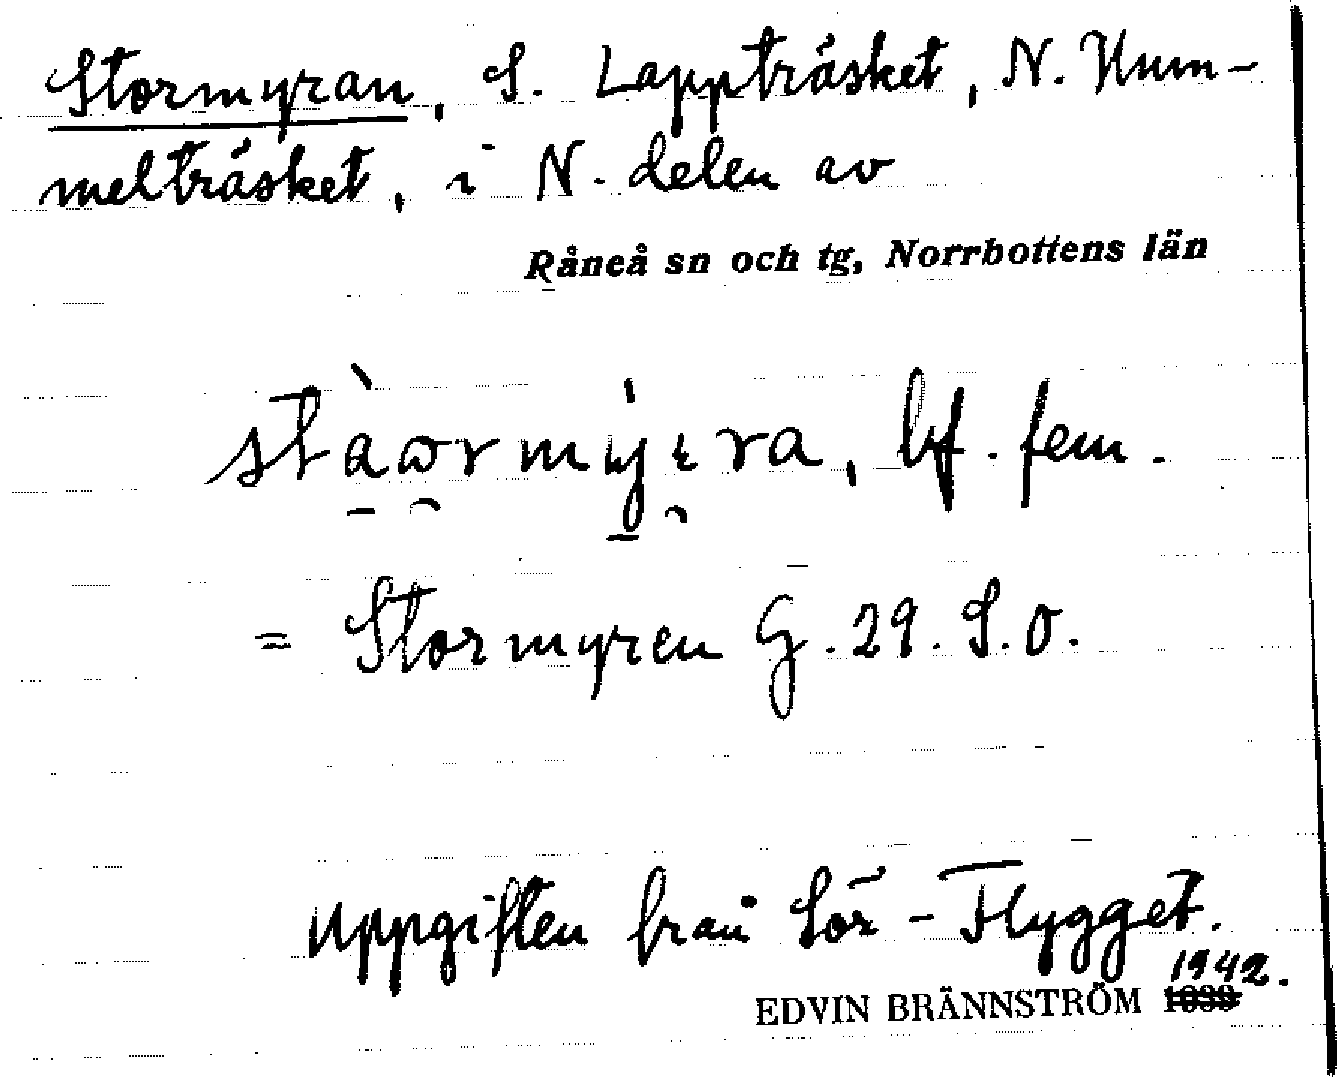 Stormyran, S. Lappträsket, N. Hum-
melträsket, i N. delen av
Råneå sn och tg, Norrbottens län
bf. fem.
= Stormyren G. 29. S.O.
Uppgiften från Sör-Flygget.
1942.
EDVIN BRÄNNSTRÖM